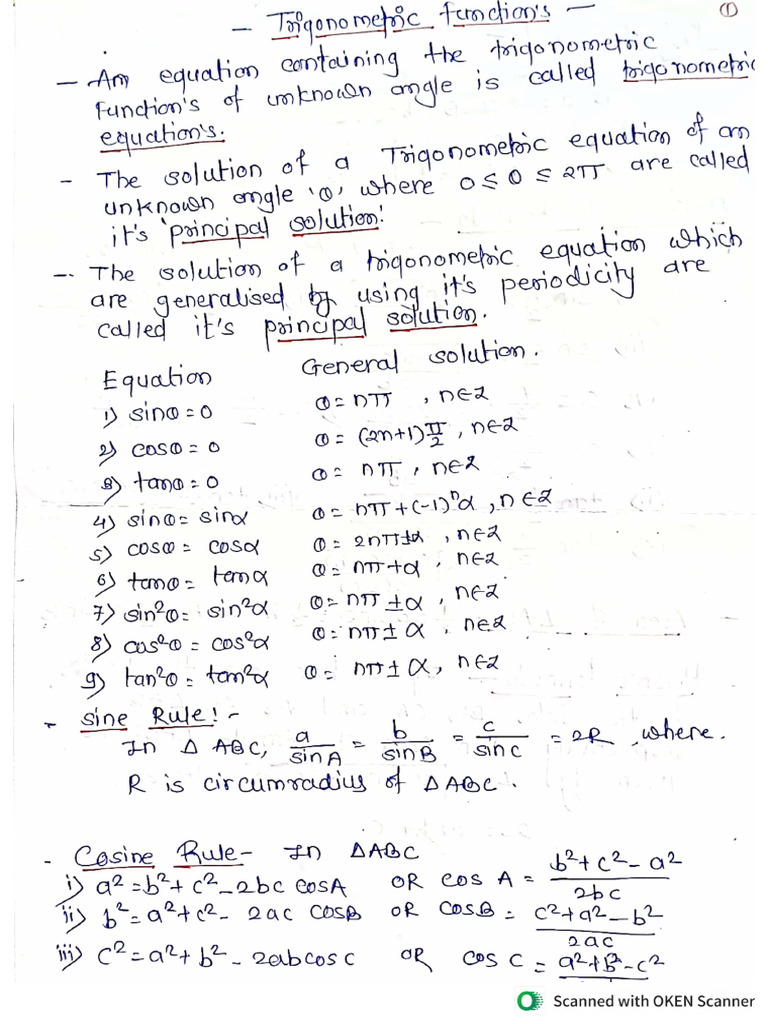 - Trigonometric functions - ①
- An equation containing the trigonometric
function's of unknown angle is called trigonometric
equation's.
- The solution of a Trigonometric equation of an
unknown angle 'θ', where 0 ≤ θ ≤ 2π are called
it's 'principal solution!
-. The solution of a trigonometric equation which
are generalised by using it's periodicity are
called it's principal solution.
Equation General solution.
1) sinθ = 0 θ = nπ , n∈Z
2) cosθ = 0 θ = (2n+1)π/2 , n∈Z
3) tanθ = 0 θ = nπ , n∈Z
4) sinθ = sinα θ = nπ + (-1)ⁿα , n∈Z
5) cosθ = cosα θ = 2nπ±α , n∈Z
6) tanθ = tanα θ = nπ+α , n∈Z
7) sin²θ = sin²α θ = nπ ±α , n∈Z
8) cos²θ = cos²α θ = nπ ± α , n∈Z
9) tan²θ = tan²α θ = nπ ± α, n∈Z
- sine Rule! -
In Δ ABC, a/sinA = b/sinB = c/sinC = 2R , where.
R is circumradius of ΔABC.
- Cosine Rule- In ΔABC
i) a² = b² + c² - 2bc cosA OR cos A = b² + c² - a²/2bc
ii) b² = a² + c² - 2ac cosB OR cosB = c² + a² - b²/2ac
iii) c² = a² + b² - 2abcosc OR cos C = a² + b² - c²
Scanned with OKEN Scanner